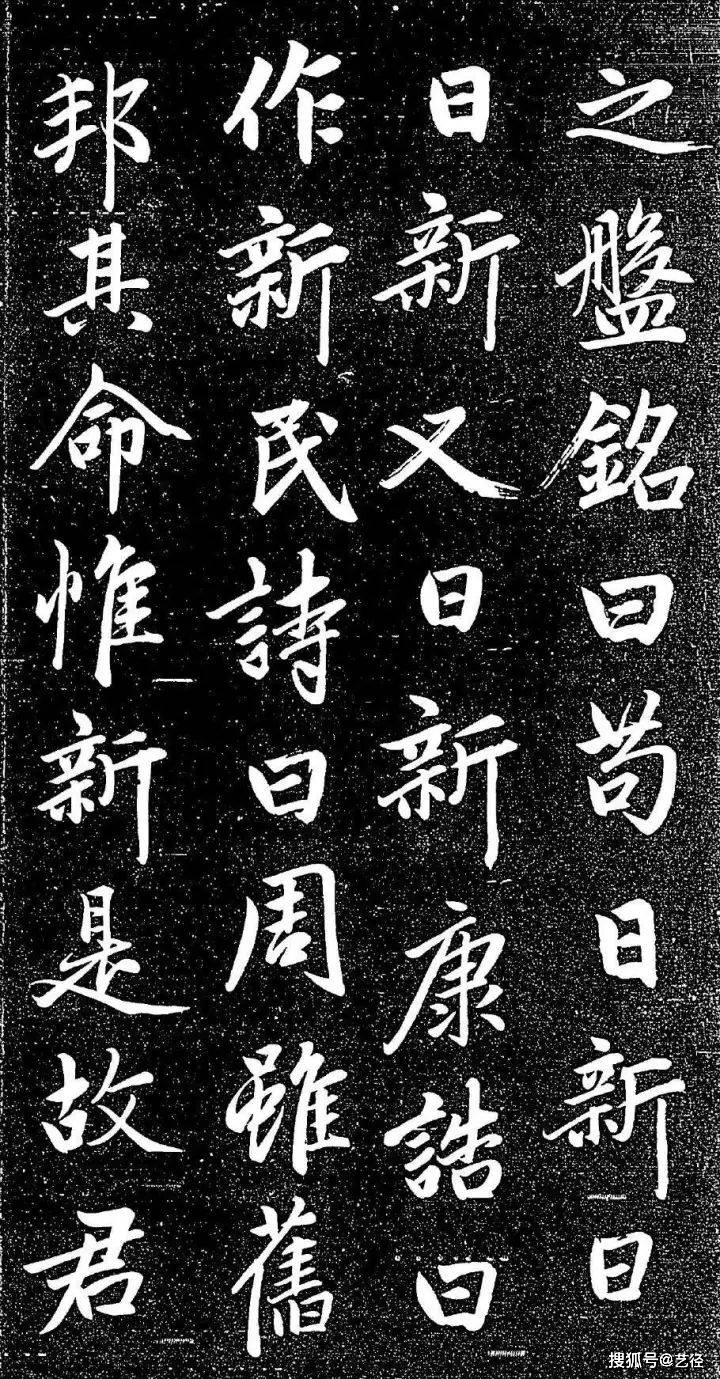 之盤銘曰苟日新日
日新又日新康誥曰
作新民詩曰周雖舊
邦其命惟新是故君
搜狐号@艺径